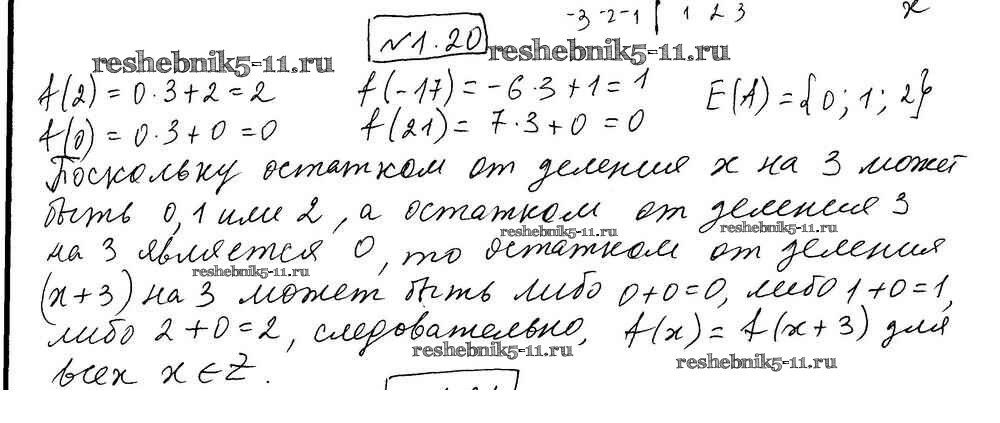 -3 -2 -1 | 1 2 3 x
№1.20
reshebnik5-11.ru reshebnik5-11.ru
f(2) = 0·3+2 = 2 f(-17) = -6·3+1 = 1 E(A) = {0; 1; 2}
f(0) = 0·3+0 = 0 f(21) = 7·3+0 = 0
Поскольку остатком от деления x на 3 может
быть 0, 1 или 2, а остатком от деления 3
reshebnik5-11.ru reshebnik5-11.ru
на 3 является 0, то остатком от деления
reshebnik5-11.ru
(x+3) на 3 может быть либо 0+0=0, либо 1+0=1,
либо 2+0=2, следовательно, f(x) = f(x+3) для
reshebnik5-11.ru reshebnik5-11.ru
всех x ∈ Z.